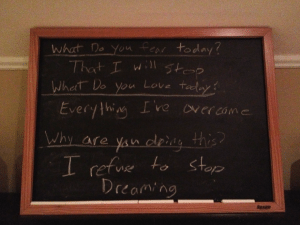 What Do you fear today?
That I will stop
What Do you Love today?
Everything I've overcome
Why are you doing this?
I refuse to stop
Dreaming